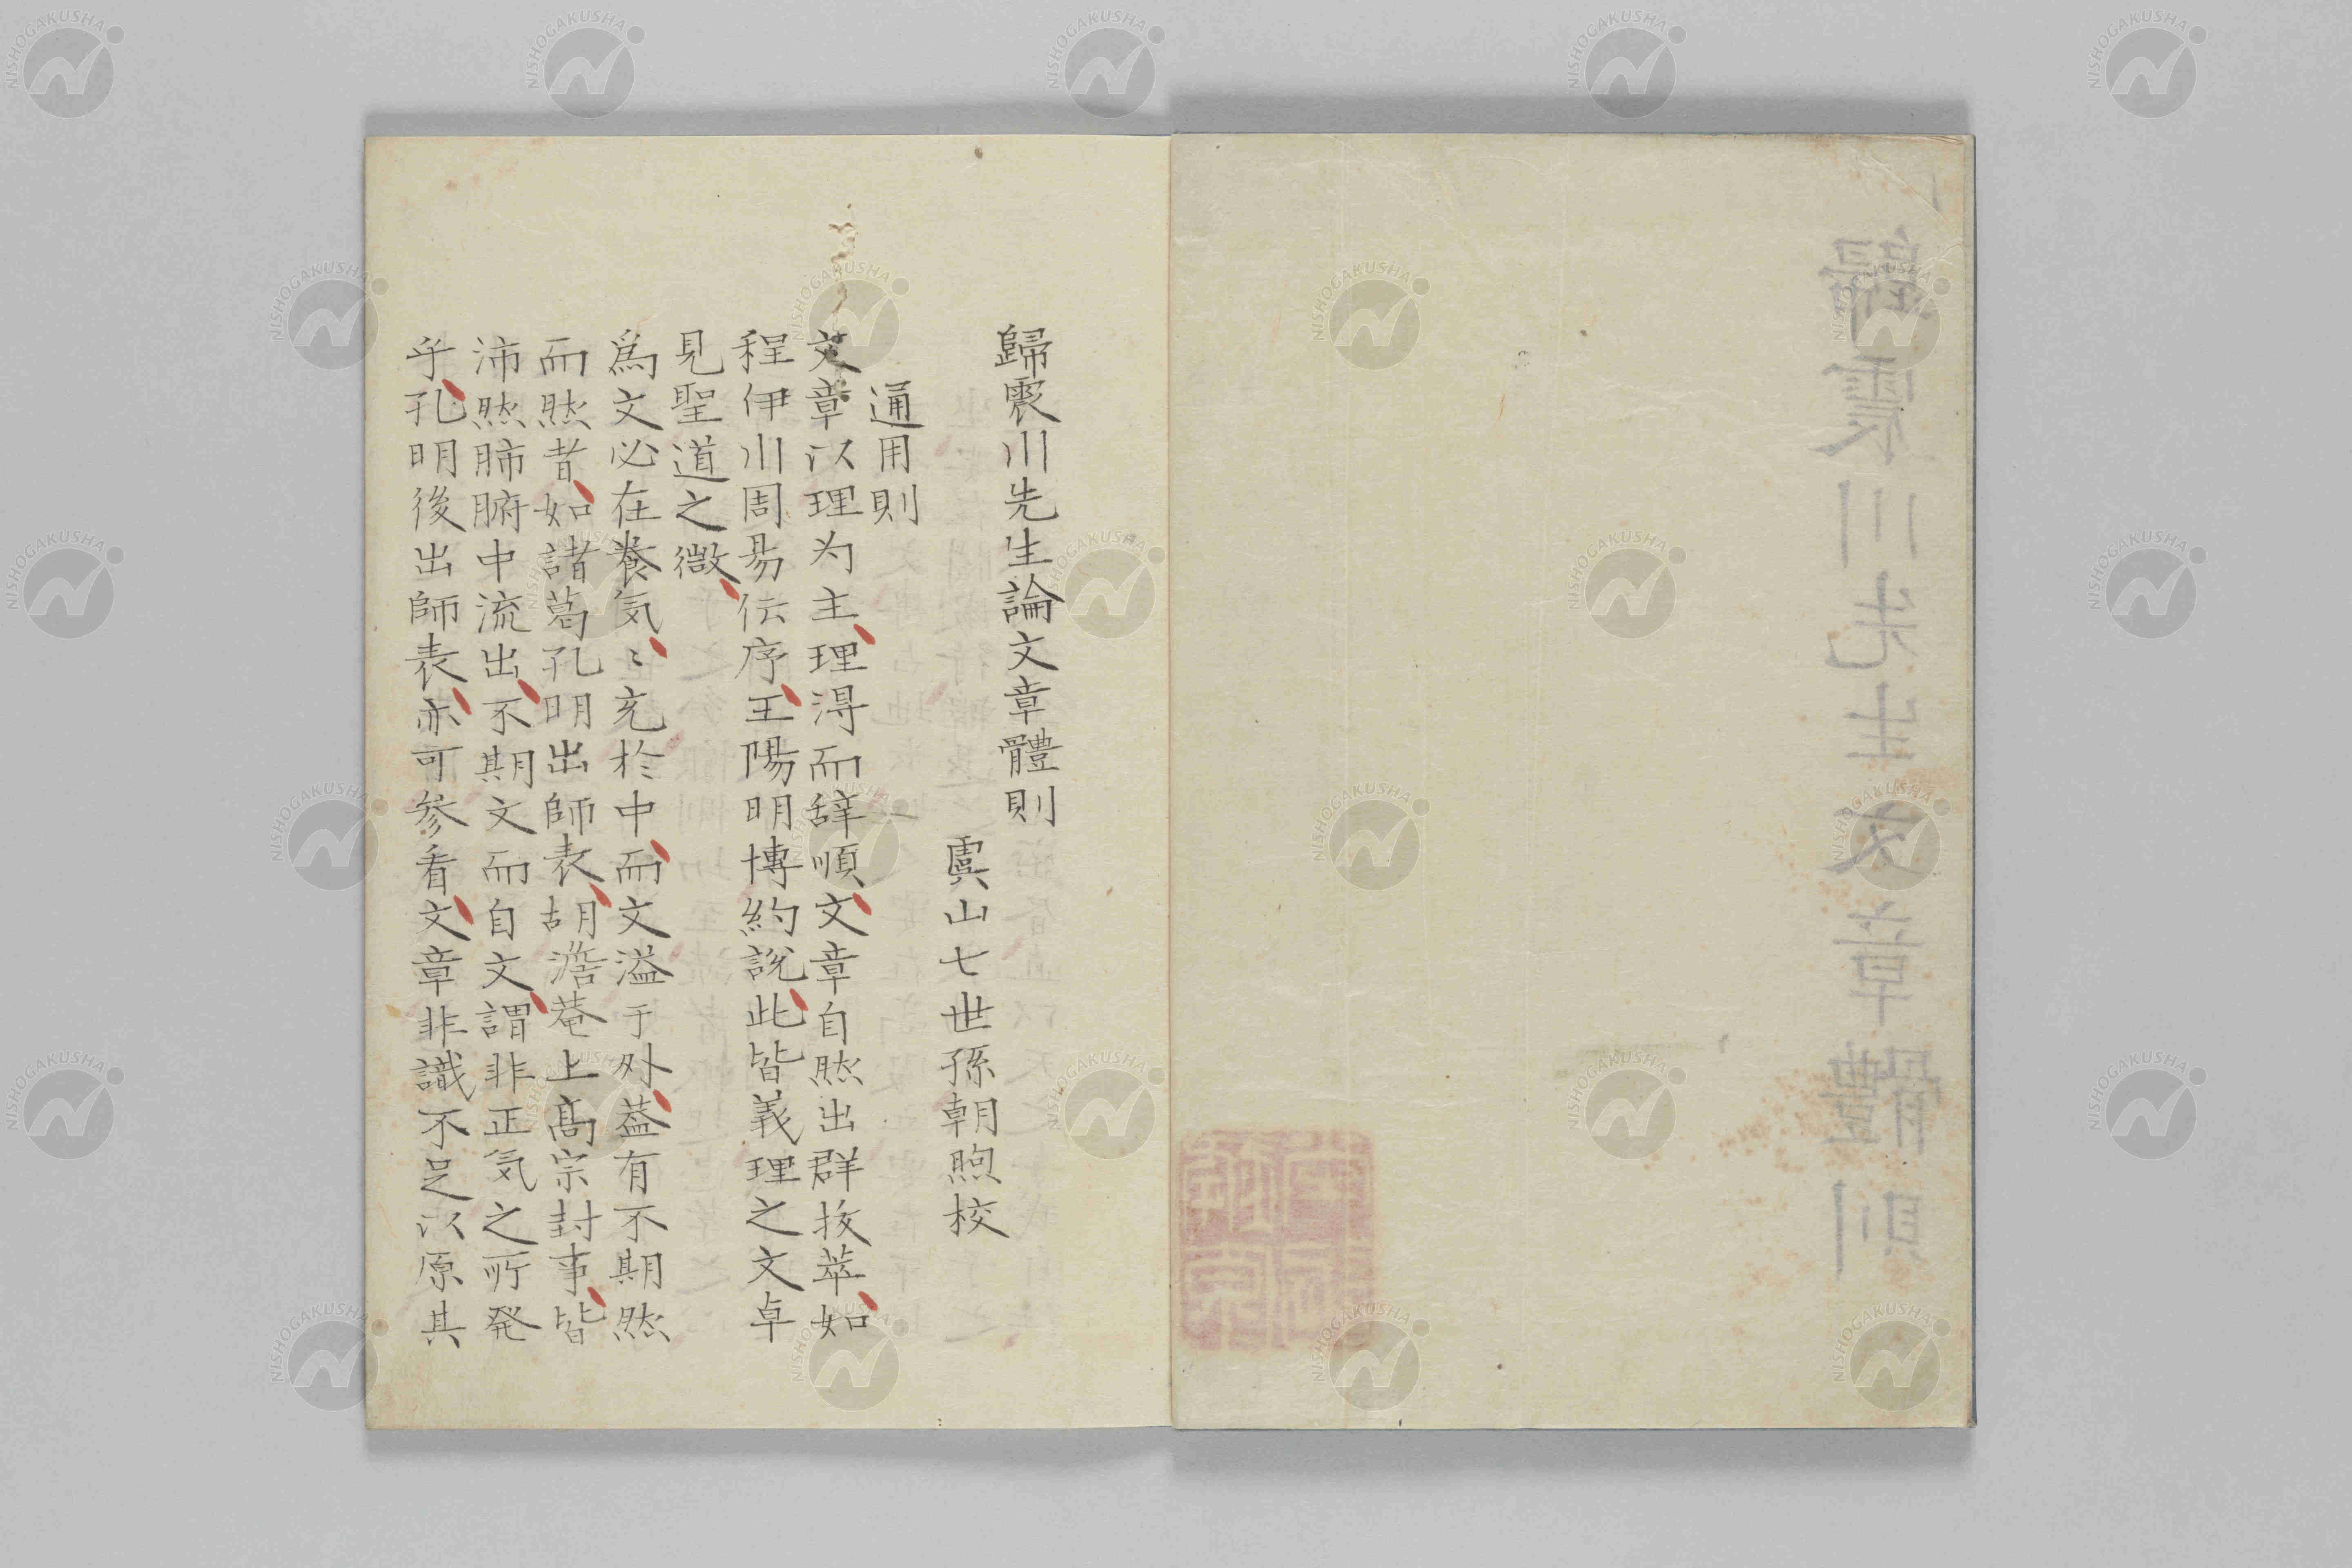 歸震川先生論文章體則
虞山七世孫朝煦校
通用則
文章以理为主理淂而辞順文章自然出群抜萃如
程伊川周易伝序王陽明博約説此皆義理之文卓
見聖道之微
為文必在養気〻充於中而文溢于外葢有不期然
而然者如諸葛孔明出師表胡澹菴上高宗封事皆
沛然肺腑中流出不期文而自文謂非正気之所発
乎孔明後出師表亦可参看文章非識不足以原其
歸震川先生文章體則
NISHOGAKUSHA